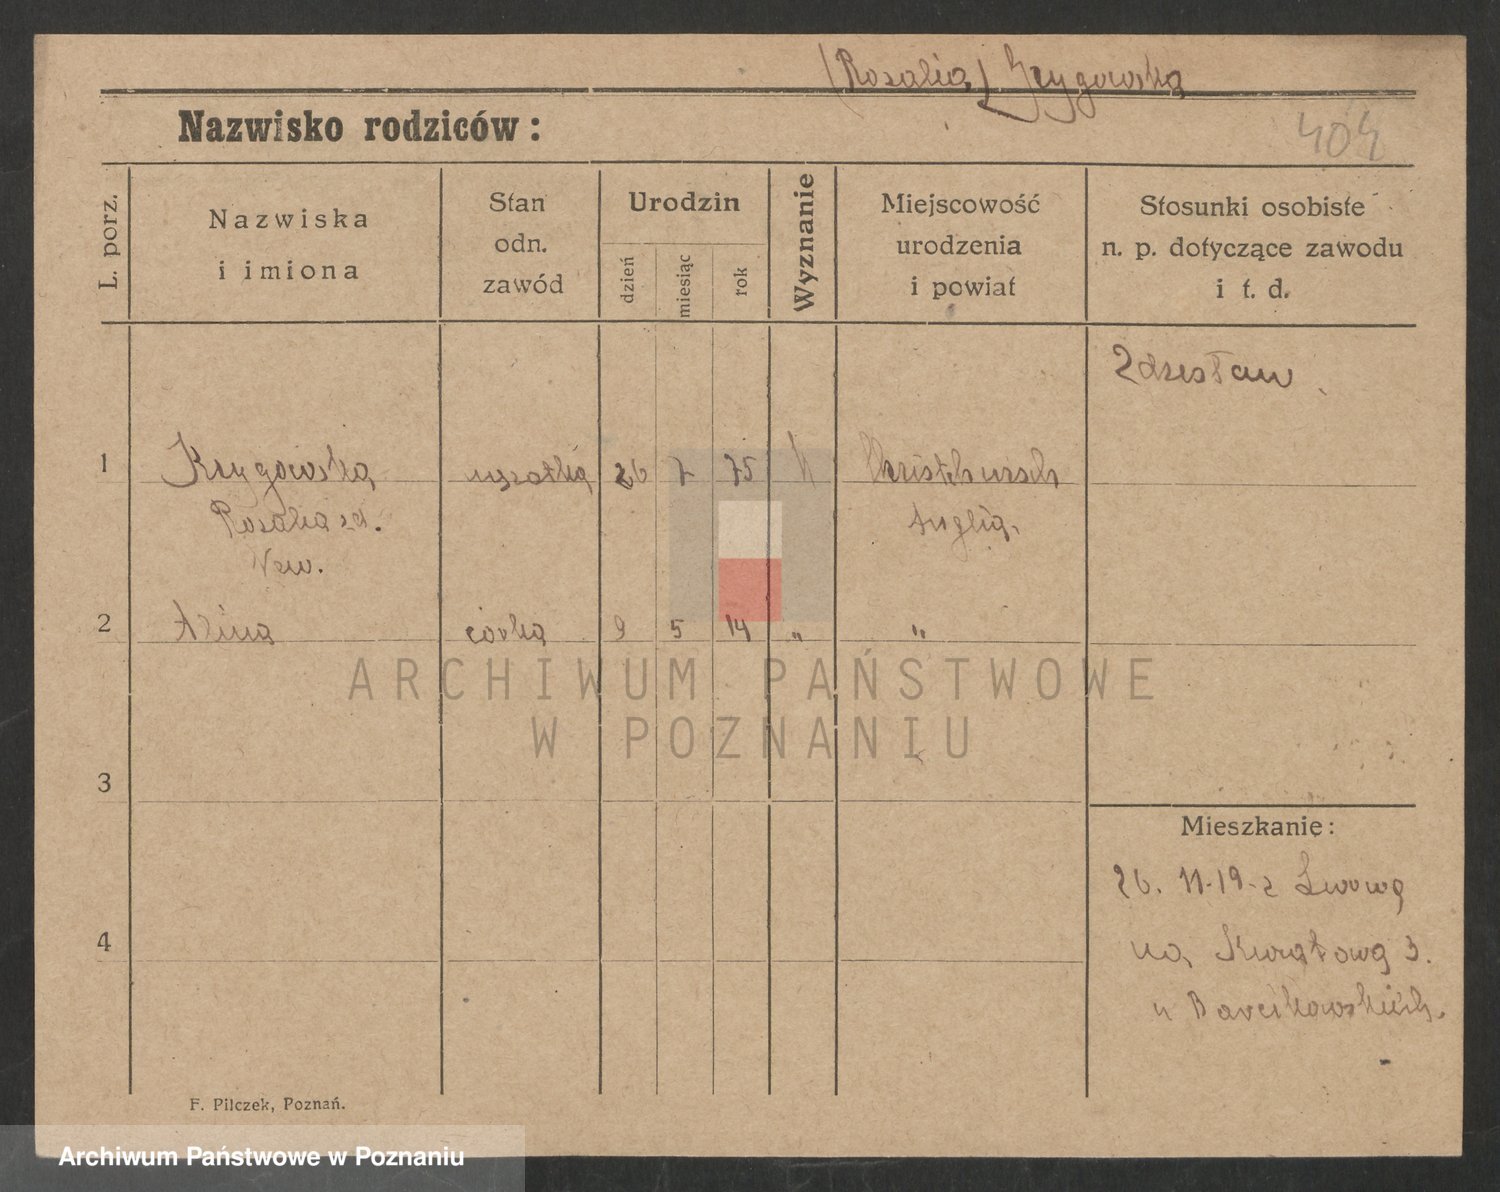 (Rosalia) Krygowska
Nazwisko rodziców:
404
L. porz.
Nazwiska
i imiona
Stan
odn.
zawód
Urodzin
dzień
miesiąc
rok
Wyznanie
Miejscowość
urodzenia
i powiat
Stosunki osobiste
n. p. dotyczące zawodu
i t. d.
Zdzisław
1 Krygowska 26 7 75 k Christchursch
Rosalia zd. Anglia.
New.
2 Alina córka 9 5 14 " "
ARCHIWUM PAŃSTWOWE
W POZNANIU
3
Mieszkanie:
26. 11-19-z Lwowa
4
na Kwiatową 3.
u Barcikowskich.
F. Pilczek, Poznań.
Archiwum Państwowe w Poznaniu